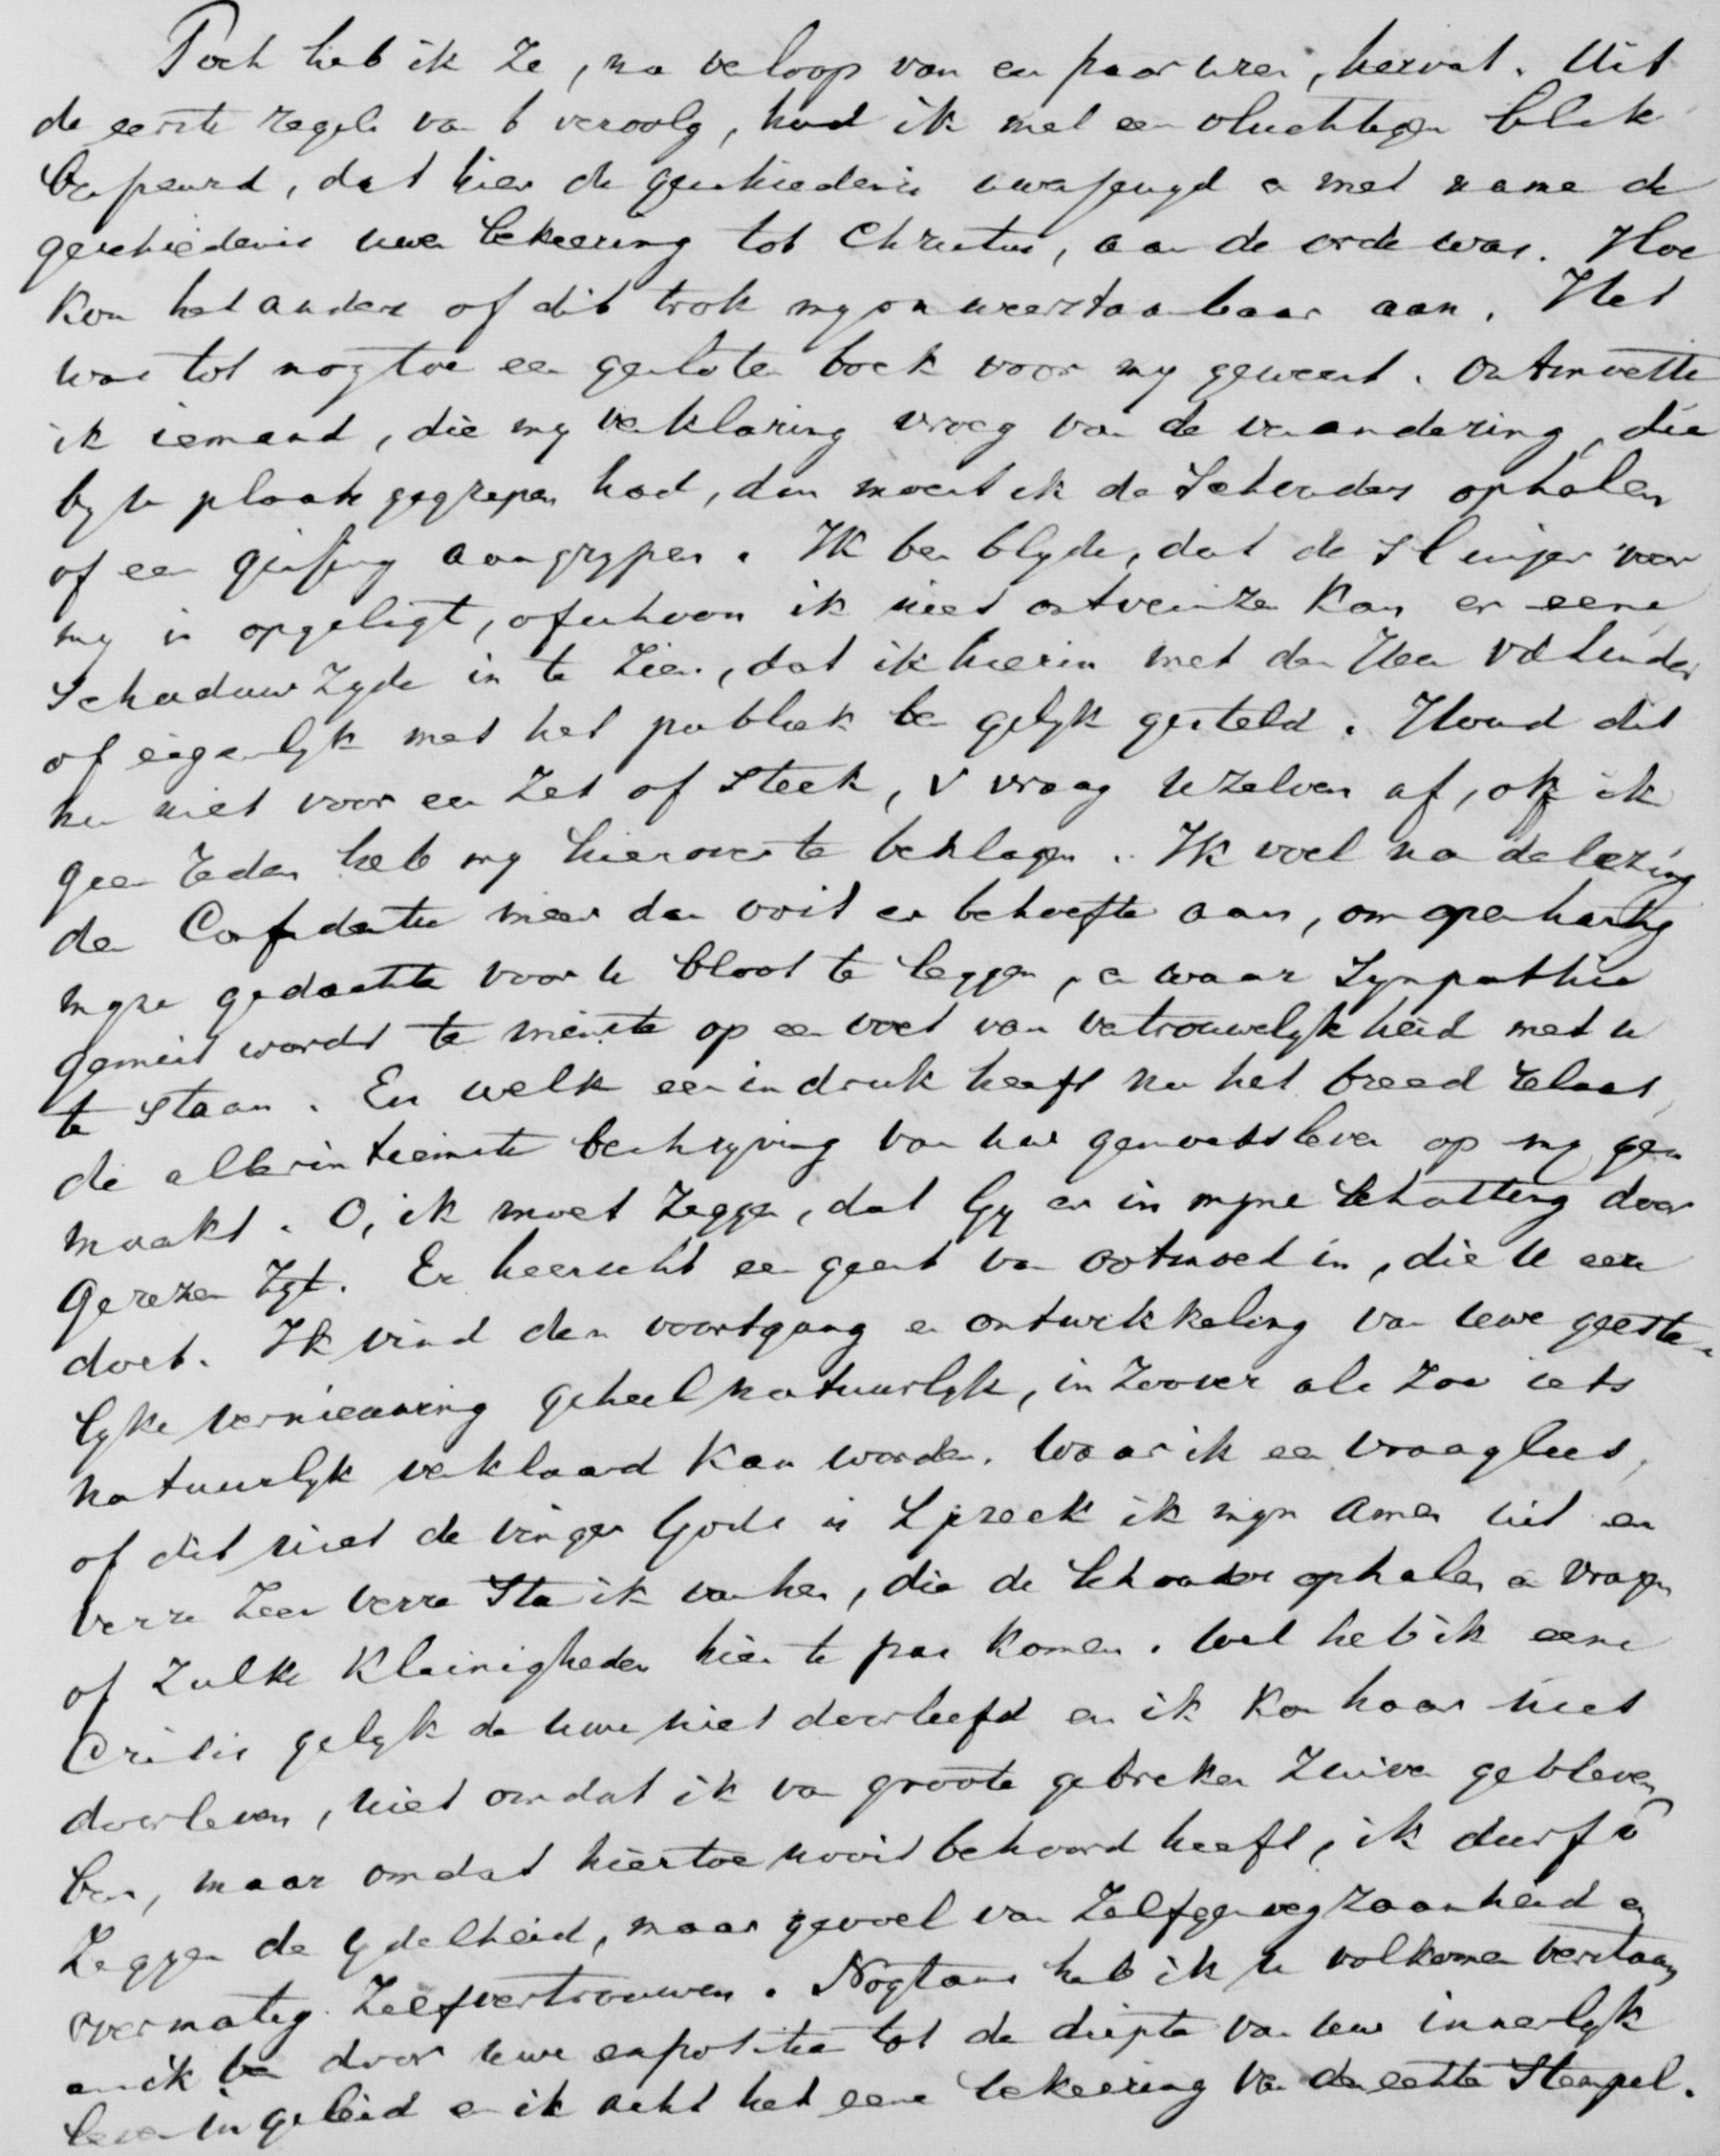 Toch heb ik ze, na verloop van een paar uren, hervat. Uit
de eerste regels van 't vervolg, had ik met een vluchtigen blik
bespeurd, dat hier de geschiedenis uwer jeugd en met name de
geschiedenis uwer bekeering tot Christus, aan de orde was. Hoe
kon het anders of dit trok my onweerstaanbaar aan. Het
was tot nog toe een gesloten boek voor my geweest. Ontmoette
ik iemand, die my verklaring vroeg van de verandering, die
by u plaats gegrepen had, dan moest ik de schouders ophalen
of een gissing aangrypen. Ik ben blyde, dat de sluijer voor
my is opgeligt, ofschoon ik niet ontveinzen kan er eene
schaduwzyde in te zien, dat ik hierin met den Heer
of eigenlyk met het publiek ben gelyk gesteld. Houd dit
nu niet voor een zet of steek, v vraag uzelven af, of ik
geen reden heb my hierover te beklagen. Ik voel na de lezing
der Confidentie meer dan ooit er behoefte aan, om openhartig
myne gedachten voor u bloot te leggen, en waar sympathie
gemist wordt te minste op een voet van vertrouwelykheid met u
te staan. En welk een indruk heeft nu het breed relaas,
die allerintiemste beschryving van uw gemoedsleven op my ge=
maakt. O, ik moet zeggen, dat Gy er in myne schatting door
gerezen zyt. Er heerscht een geest van ootmoed in, die u eere
doet. Ik vind den voortgang en ontwikkeling van uwe geeste=
lyke vernieuwing geheel natuurlyk, in zoover als zoo iets
natuurlyk verklaard kan worden. Waar ik een vraag lees,
of dit niet de vinger Gods is spreek ik myn amen uit en
verre zeer verre sta ik van hen, die de schouders ophalen en vragen
of zulke kleinigheden hier te pas komen. Wel heb ik eene
crisis gelyk de uwe niet doorleefd en ik kon haar niet
doorleven, niet omdat ik van groote gebreken zuiver gebleven
ben, maar omdat hiertoe nooit behoord heeft, ik durf 't
zeggen de ydelheid, maar gevoel van zelfgenoegzaamheid en
overmatig zelfvertrouwen. Nogtans heb ik u volkomen verstaan
en ik ben door uwe expositie tot de diepte van uw innerlyk
leven ingeleid en ik acht het eene bekeering van den echten stempel.